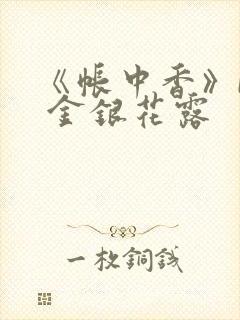 《帳中香》
金銀花露
一枚銅錢